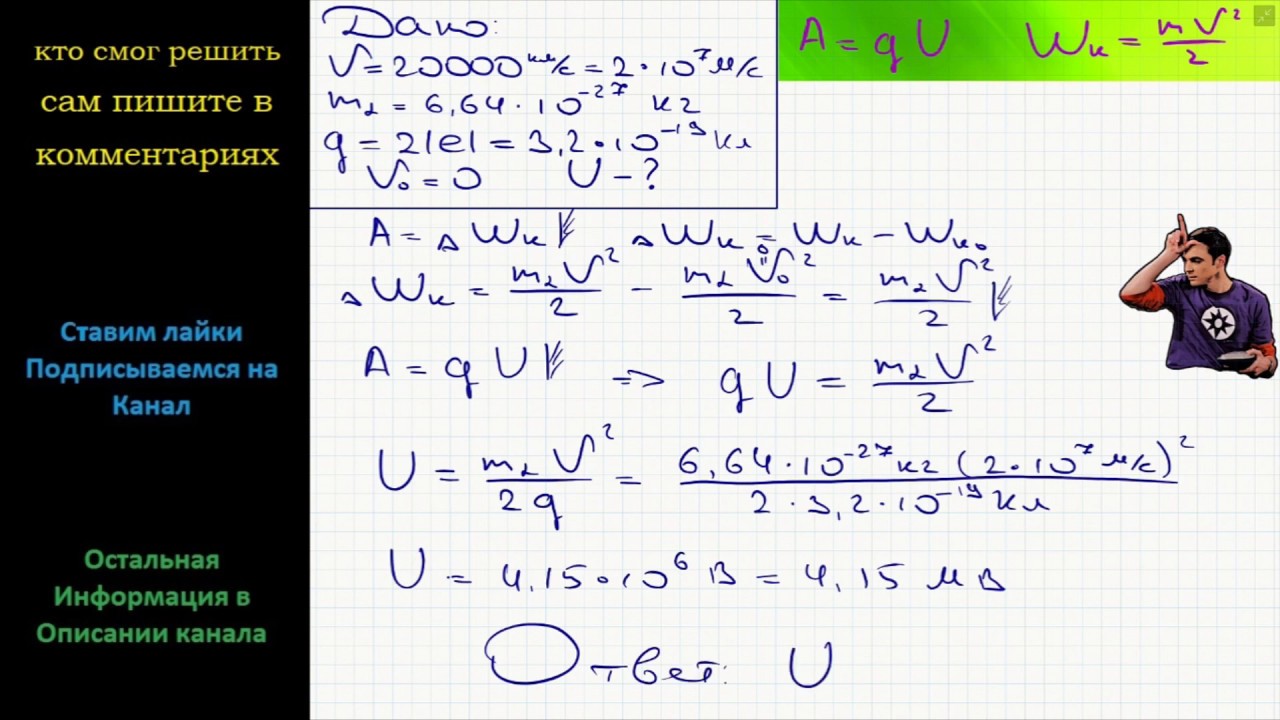 кто смог решить
сам пишите в
комментариях
Ставим лайки
Подписываемся на
Канал
Остальная
Информация в
Описании канала
Дано:
V = 20000 км/с = 2·10⁷ м/с
mα = 6,64·10⁻²⁷ кг
q = 2|e| = 3,2·10⁻¹⁹ Кл
V₀ = 0 U - ?
A = qU Wк = mV²/2
A = ΔWк ΔWк = Wк − Wк₀
ΔWк = mαV²/2 − mαV₀²/2 = mαV²/2
0
"
A = qU => qU = mαV²/2
U = mαV²/2q = 6,64·10⁻²⁷кг (2·10⁷ м/с)²/2·3,2·10⁻¹⁹Кл
U = 4,15·10⁶ В = 4,15 МВ
Ответ: U